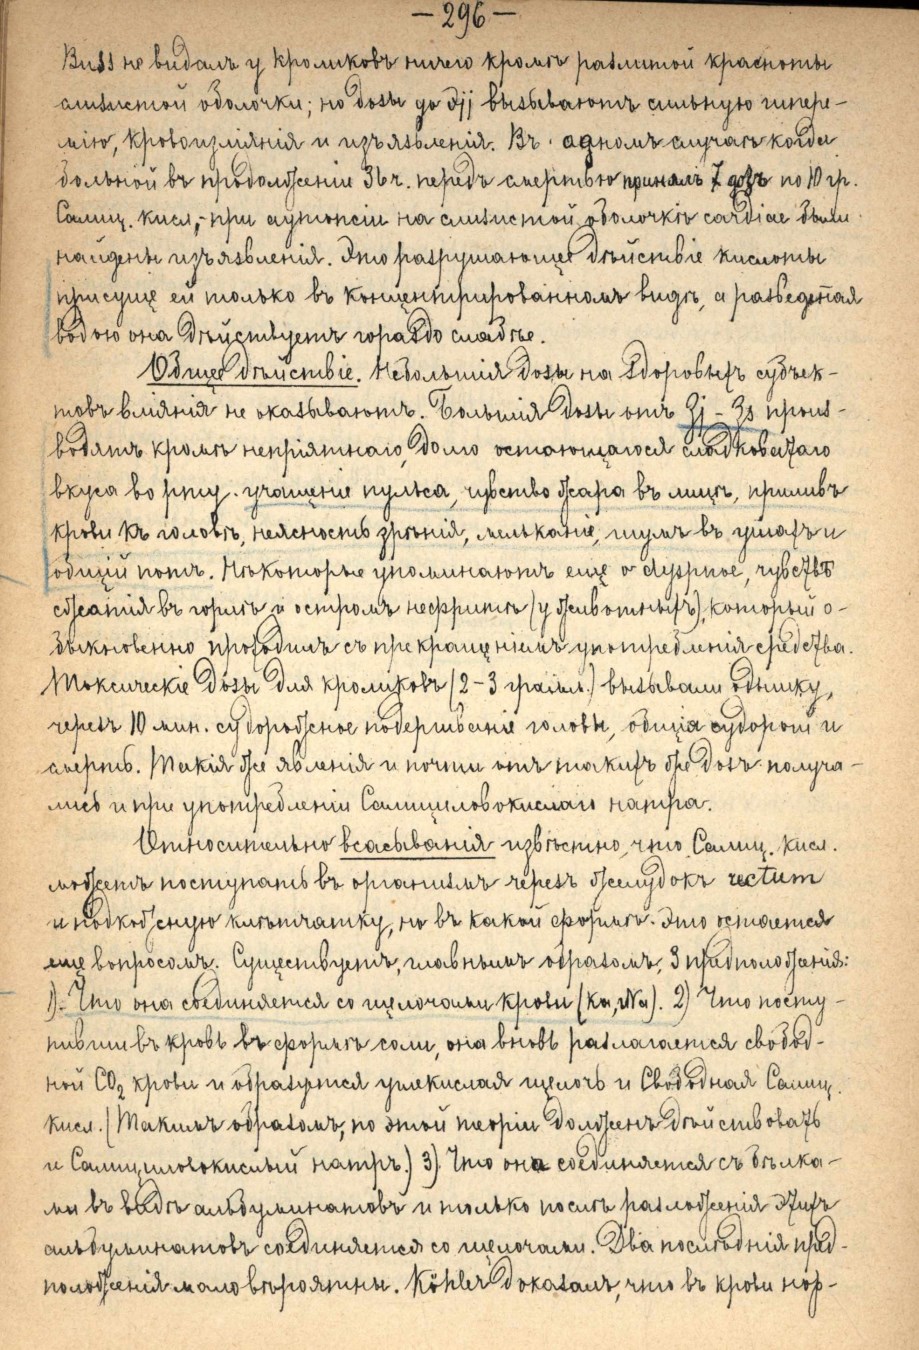 — 296 —
Buss не видалъ у кроликовъ ничего кромѣ разлитой красноты
слизистой оболочки; но дозы до ʒjj вызываютъ сильную гипере-
мію, кровоизліянія и изъязвленія. Въ одномъ случаѣ когда
больной въ продолженіи 36 ч. передъ смертью принялъ 7 дозъ по 10 гр.
Салиц. кисл,- при аутопсіи на слизистой оболочкѣ cardiae были
найдены изъязвленія. Это разрушающее дѣйствіе кислоты
присуще ей только въ концентрированномъ видѣ, а разведенная
водою она дѣйствуетъ гораздо слабѣе.
Общее дѣйствіе. Небольшія дозы на здоровыхъ субъек-
товъ вліянія не оказываютъ. Большія дозы отъ ʒj – ʒs произ-
водятъ кромѣ непріятнаго, долго остающагося сладковатаго
вкуса во рту. учащеніе пульса, чувство жара въ лицѣ, приливъ
крови къ головѣ, неясность зрѣнія, мельканіе, шумъ въ ушахъ и
общій потъ. Нѣкоторые упоминаютъ еще о dyspnoe, чувствѣ
сжатія въ горлѣ и остромъ нефритѣ (у животныхъ), который о-
быкновенно проходилъ съ прекращеніемъ употребленія средства.
Токсическіе дозы для кроликовъ (2–3 грамм.) вызывали одышку,
черезъ 10 мин. судорожное подергиваніе головы, общія судороги и
смерть. Такія же явленія и почти отъ такихъ же дозъ получа-
лись и при употребленіи Салициловокислаго натра.
Относительно всасыванія извѣстно, что Салиц. кисл.
можетъ поступать въ организмъ черезъ желудокъ rectum
и подкожную клѣтчатку, но въ какой формѣ. Это остается
еще вопросомъ. Существуетъ, главнымъ образомъ, 3 предположенія:
1). Что она соединяется со щелочами крови (Ka, Na). 2) Что посту-
пивши въ кровь въ формѣ соли, она вновь разлагается свобод-
ной CO₂ крови и образуется углекислая щелочь и свободная Салиц.
кисл. (Такимъ образомъ, по этой теоріи долженъ дѣйствовать
и Салициловокислый натръ.) 3) Что она соединяется съ бѣлка-
ми въ видѣ альбуминатовъ и только послѣ разложенія этихъ
альбуминатовъ соединяется со щелочами. Два послѣднія пред-
положенія маловѣроятны. Köhler доказалъ, что въ крови нор-